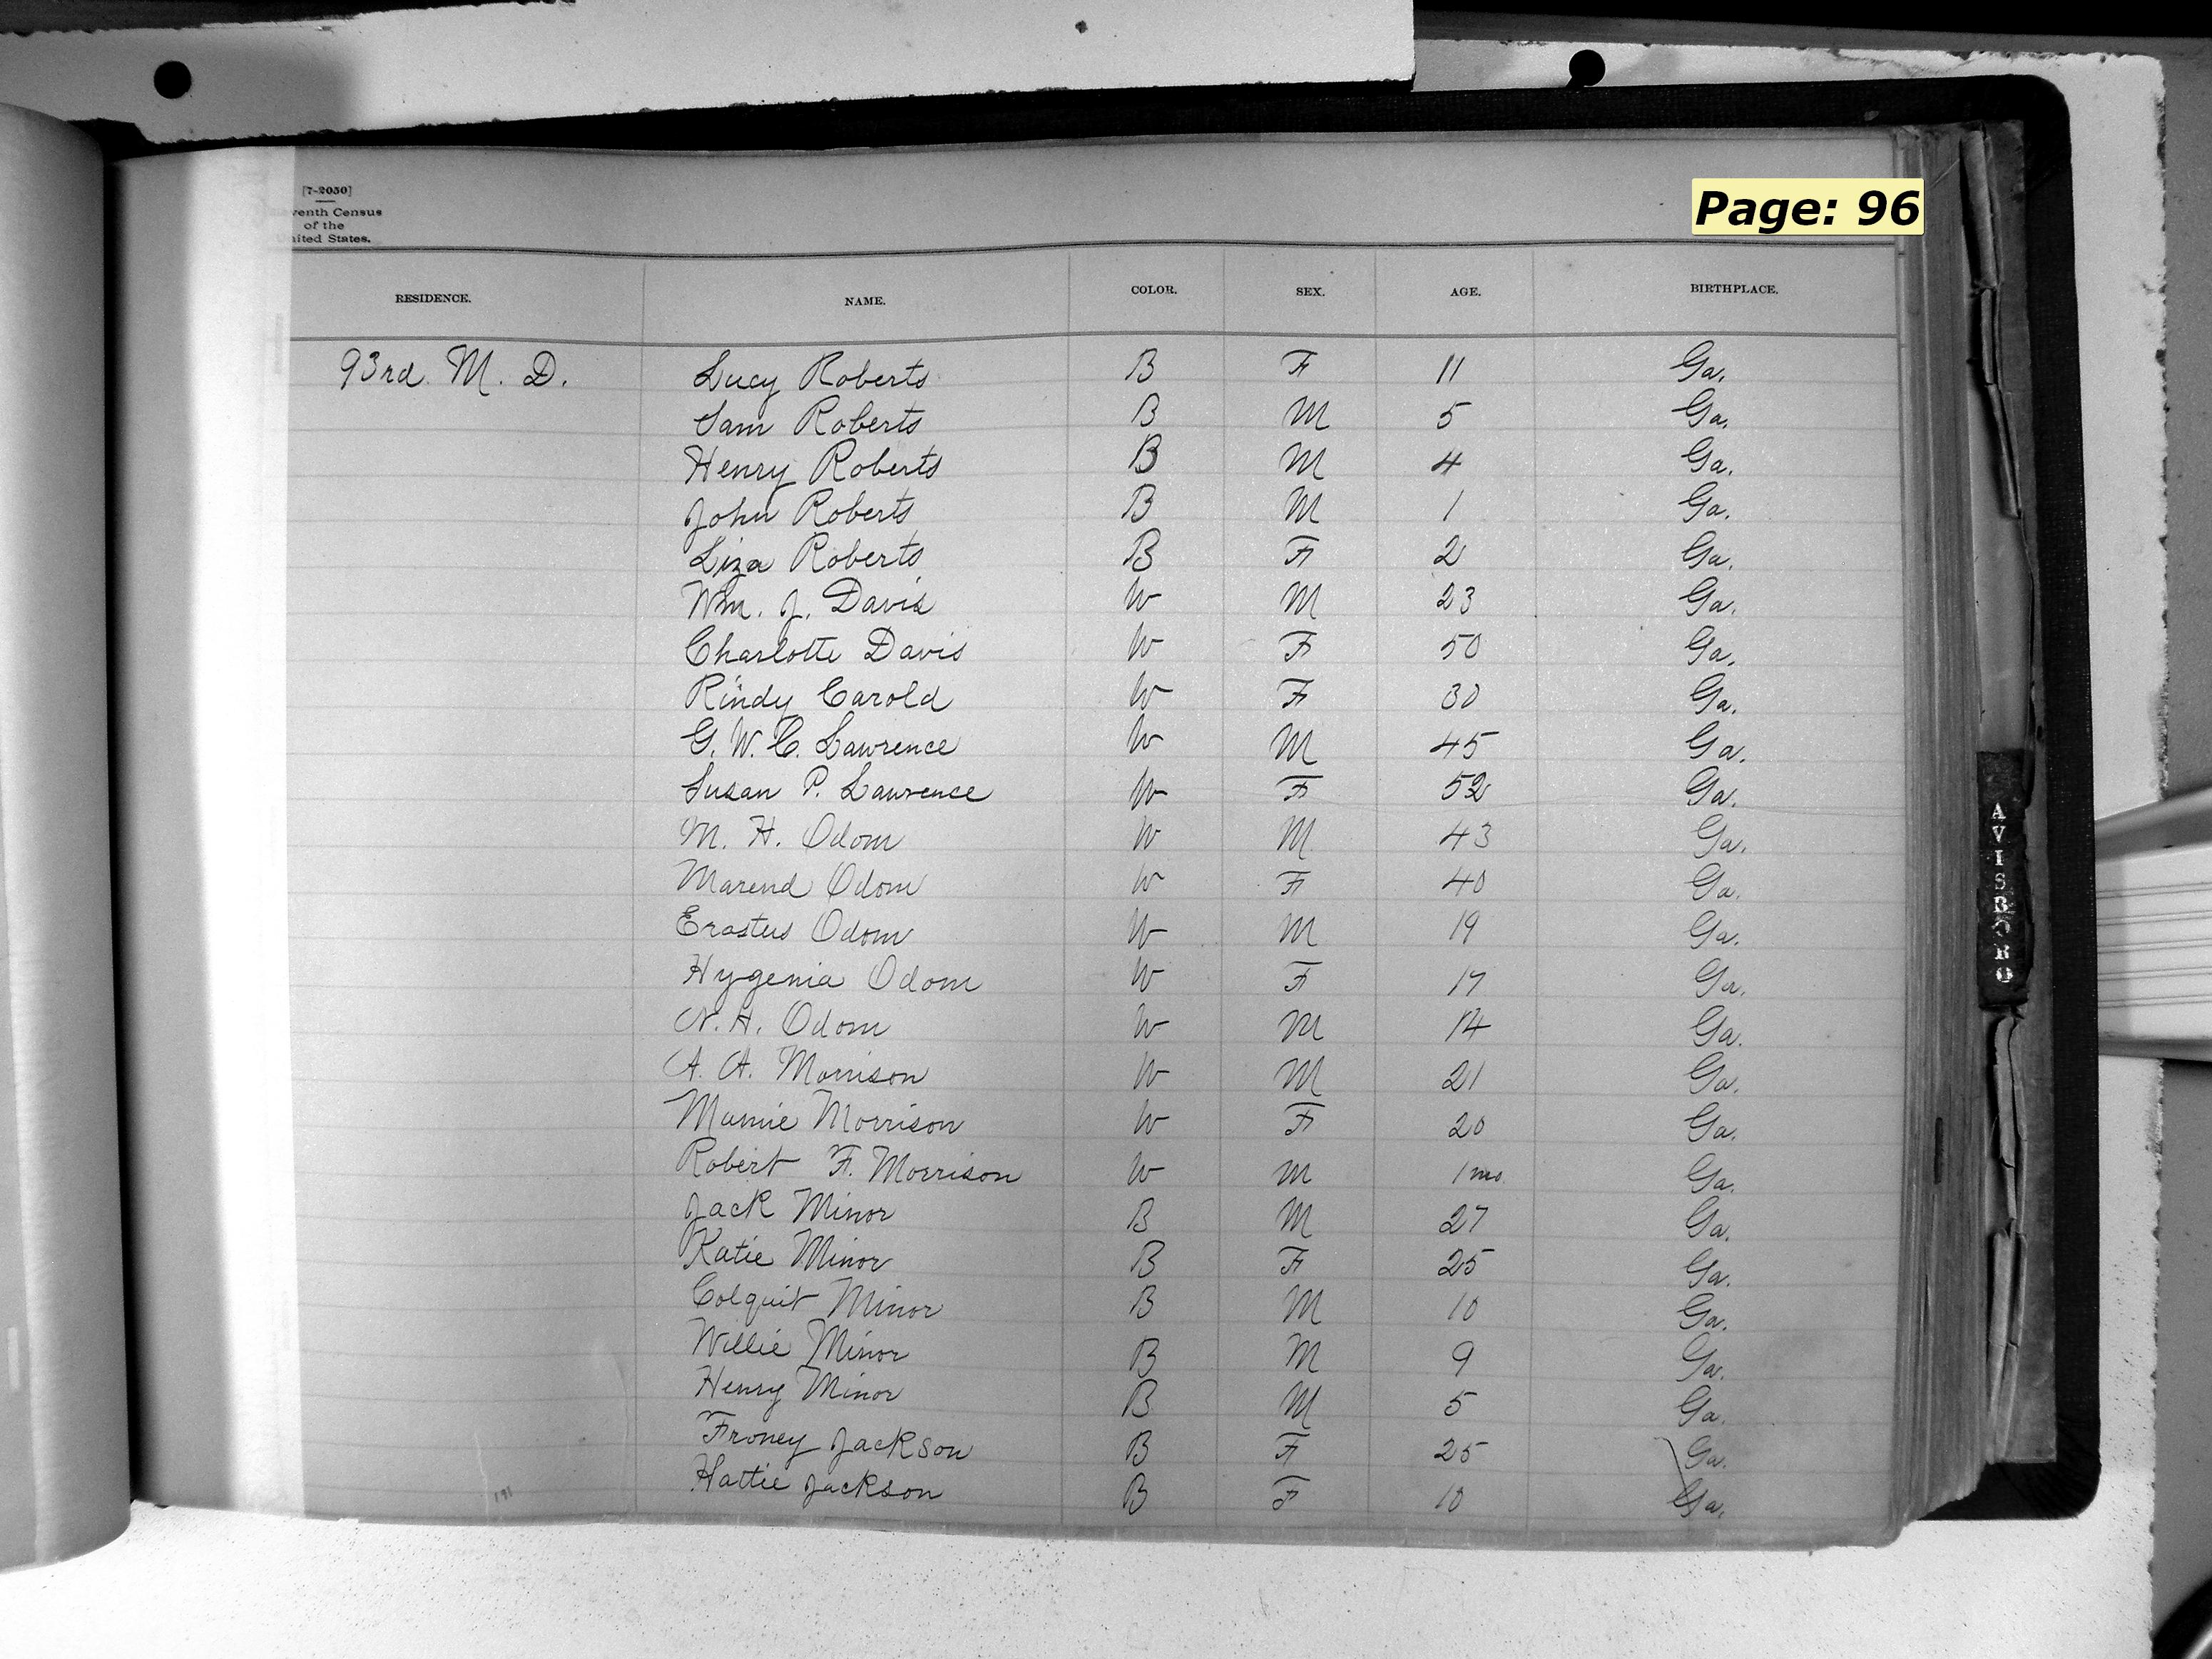 [7-2050]
Eleventh Census
of the
United States.
Page: 96
RESIDENCE. NAME. COLOR. SEX. AGE. BIRTHPLACE.
93rd M. D. Lucy Roberts B F 11 Ga.
Sam Roberts B M 5 Ga.
Henry Roberts B M 4 Ga.
John Roberts B M 1 Ga.
Liza Roberts B F 2 Ga.
Wm. J. Davis W M 23 Ga.
Charlotte Davis W F 50 Ga.
Rindy Carold W F 30 Ga.
G. W. C. Lawrence W M 45 Ga.
Susan P. Lawrence W F 52 Ga.
M. H. Odom W M 43 Ga.
Marend Odom W F 40 Ga.
Erastus Odom W M 19 Ga.
Hygenia Odom W F 17 Ga.
N. H. Odom W M 14 Ga.
A. A. Morrison W M 21 Ga.
Mamie Morrison W F 20 Ga.
Robert F. Morrison W M 1 mo. Ga.
Jack Minor B M 27 Ga.
Katie Minor B F 25 Ga.
Colquit Minor B M 10 Ga.
Willie Minor B M 9 Ga.
Henry Minor B M 5 Ga.
Froney Jackson B F 25 Ga.
Hattie Jackson B F 10 Ga.
AVISBORO